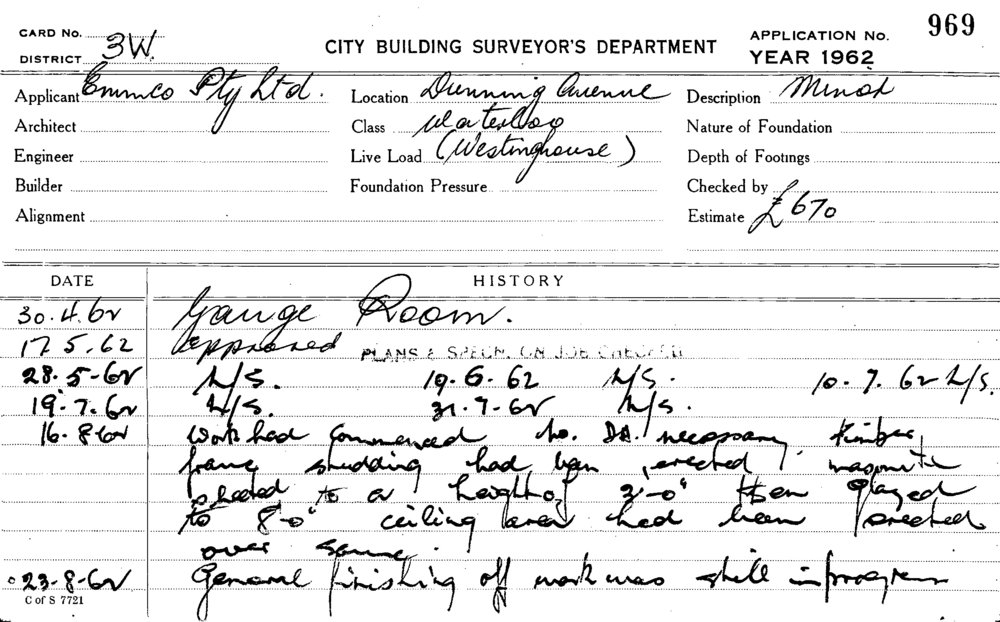 CARD NO. 3W. CITY BUILDING SURVEYOR'S DEPARTMENT APPLICATION NO. 969
DISTRICT YEAR 1962
Applicant Emmco Pty Ltd. Location Dunning Avenue Description Minor
Architect Class Waterloo Nature of Foundation
Engineer Live Load (Westinghouse) Depth of Footings
Builder Foundation Pressure Checked by
Alignment Estimate £670
DATE HISTORY
30.4.62 Gauge Room.
17.5.62 Approved PLANS & SPECN. ON JOB CHECKED
28.5-62 N/S. 19.6.62 N/S. 10.7.62 N/S.
19.7.62 N/S. 31.7-62 N/S.
16.8.62 Work had commenced no. DA. necessary, timber
frame studding had been erected masonite
sheeted to a height of 3'-0" then glazed
to 8'-0" ceiling area had been erected
over same.
23-8-62 General finishing off work was still in progress
C of S 7721